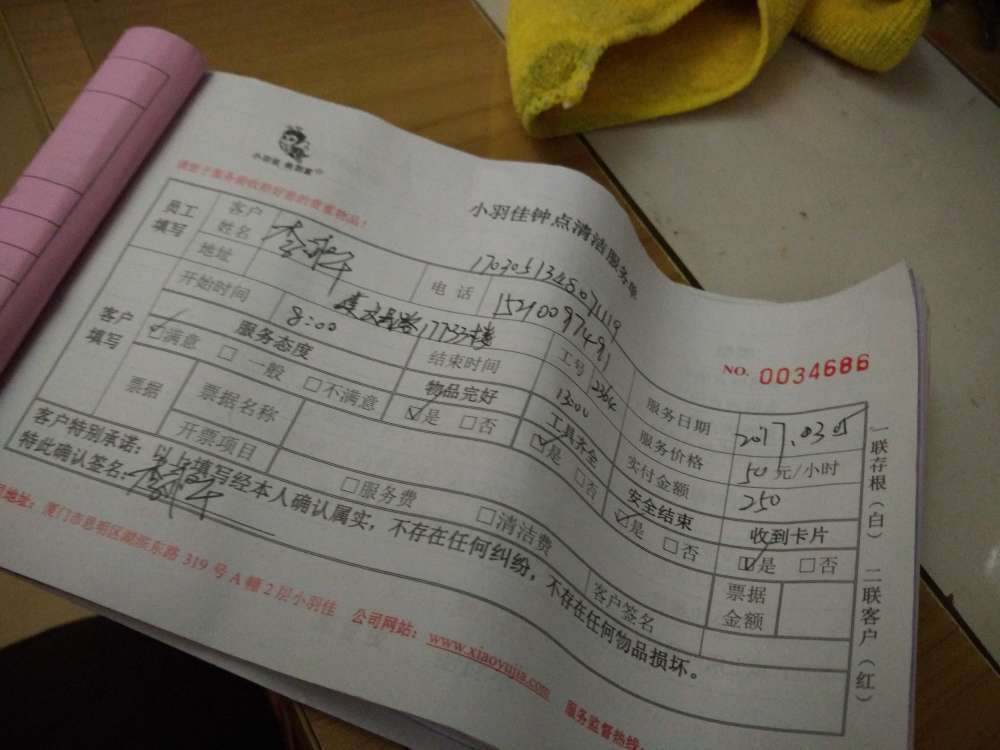 小羽佳 钟点清洁服务单
1703051348071119
NO. 0034686
员工填写 客户姓名 电话 15210097491 服务日期 2017.03.05
地址 1773号楼 工号 服务价格 50元/小时
开始时间 8:00 结束时间 13:00 实付金额 250
客户填写 服务态度 物品完好 工具齐全 安全结束 收到卡片
☑满意 □一般 □不满意 ☑是 □否 ☑是 □否 ☑是 □否 ☑是 □否
票据 票据名称 客户签名 票据金额
开票项目 □服务费 □清洁费
客户特别承诺：以上填写经本人确认属实，不存在任何纠纷，不存在任何物品损坏。
特此确认签名：
地址：厦门市思明区湖滨东路319号A幢2层小羽佳 公司网站：www.xiaoyujia.com 服务监督热线：
一联存根（白） 二联客户（红）